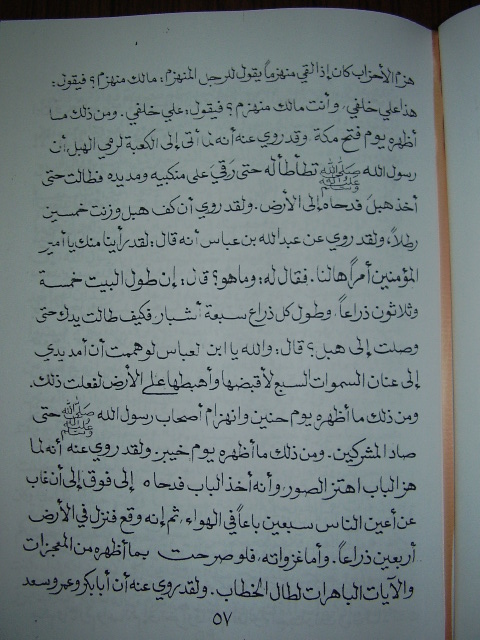 هزم الأحزاب كان إذا لقي منهزماً يقول للرجل المنهزم: مالك منهزم؟ فيقول:
هذا علي خلفي، وأنت مالك منهزم؟ فيقول: علي خلفي. ومن ذلك ما
أظهره يوم فتح مكة وقد روي عنه أنه لما أتى إلى الكعبة لرمي الهبل أن
رسول الله ﷺ تطأطأ له حتى رَقي على منكبيه ومد يده فطالت حتى
أخذ هبل فدحاه إلى الأرض. ولقد روي أن كف هبل وزنت خمسين
رطلاً، ولقد روي عن عبد الله بن عباس أنه قال: لقد رأينا منك يا أمير
المؤمنين أمراً هالنا. فقال له: وما هو؟ قال: إن طول البيت خمسة
وثلاثون ذراعاً، وطول كل ذراع سبعة أشبار، فكيف طالت يدك حتى
وصلت إلى هبل؟ قال: والله يا ابن لعباس لو هممت أن أمد يدي
إلى عنان السموات السبع لأقبضها وأهبطها على الأرض لفعلت ذلك.
ومن ذلك ما أظهره يوم حنين وانهزام أصحاب رسول الله ﷺ حتى
صاد المشركين. ومن ذلك ما أظهره يوم خيبر، ولقد روي عنه أنه لما
هز الباب اهتز الصور، وأنه أخذ الباب فدحاه إلى فوق إلى أن غاب
عن أعين الناس سبعين باعاً في الهواء، ثم إنه وقع فنزل في الأرض
أربعين ذراعاً. وأما غزواته، فلو صرحت بما أظهره من المعجزات
والآيات الباهرات لطال الخطاب. ولقد روي عنه أن أبا بكر وعمر وسعد
٥٧